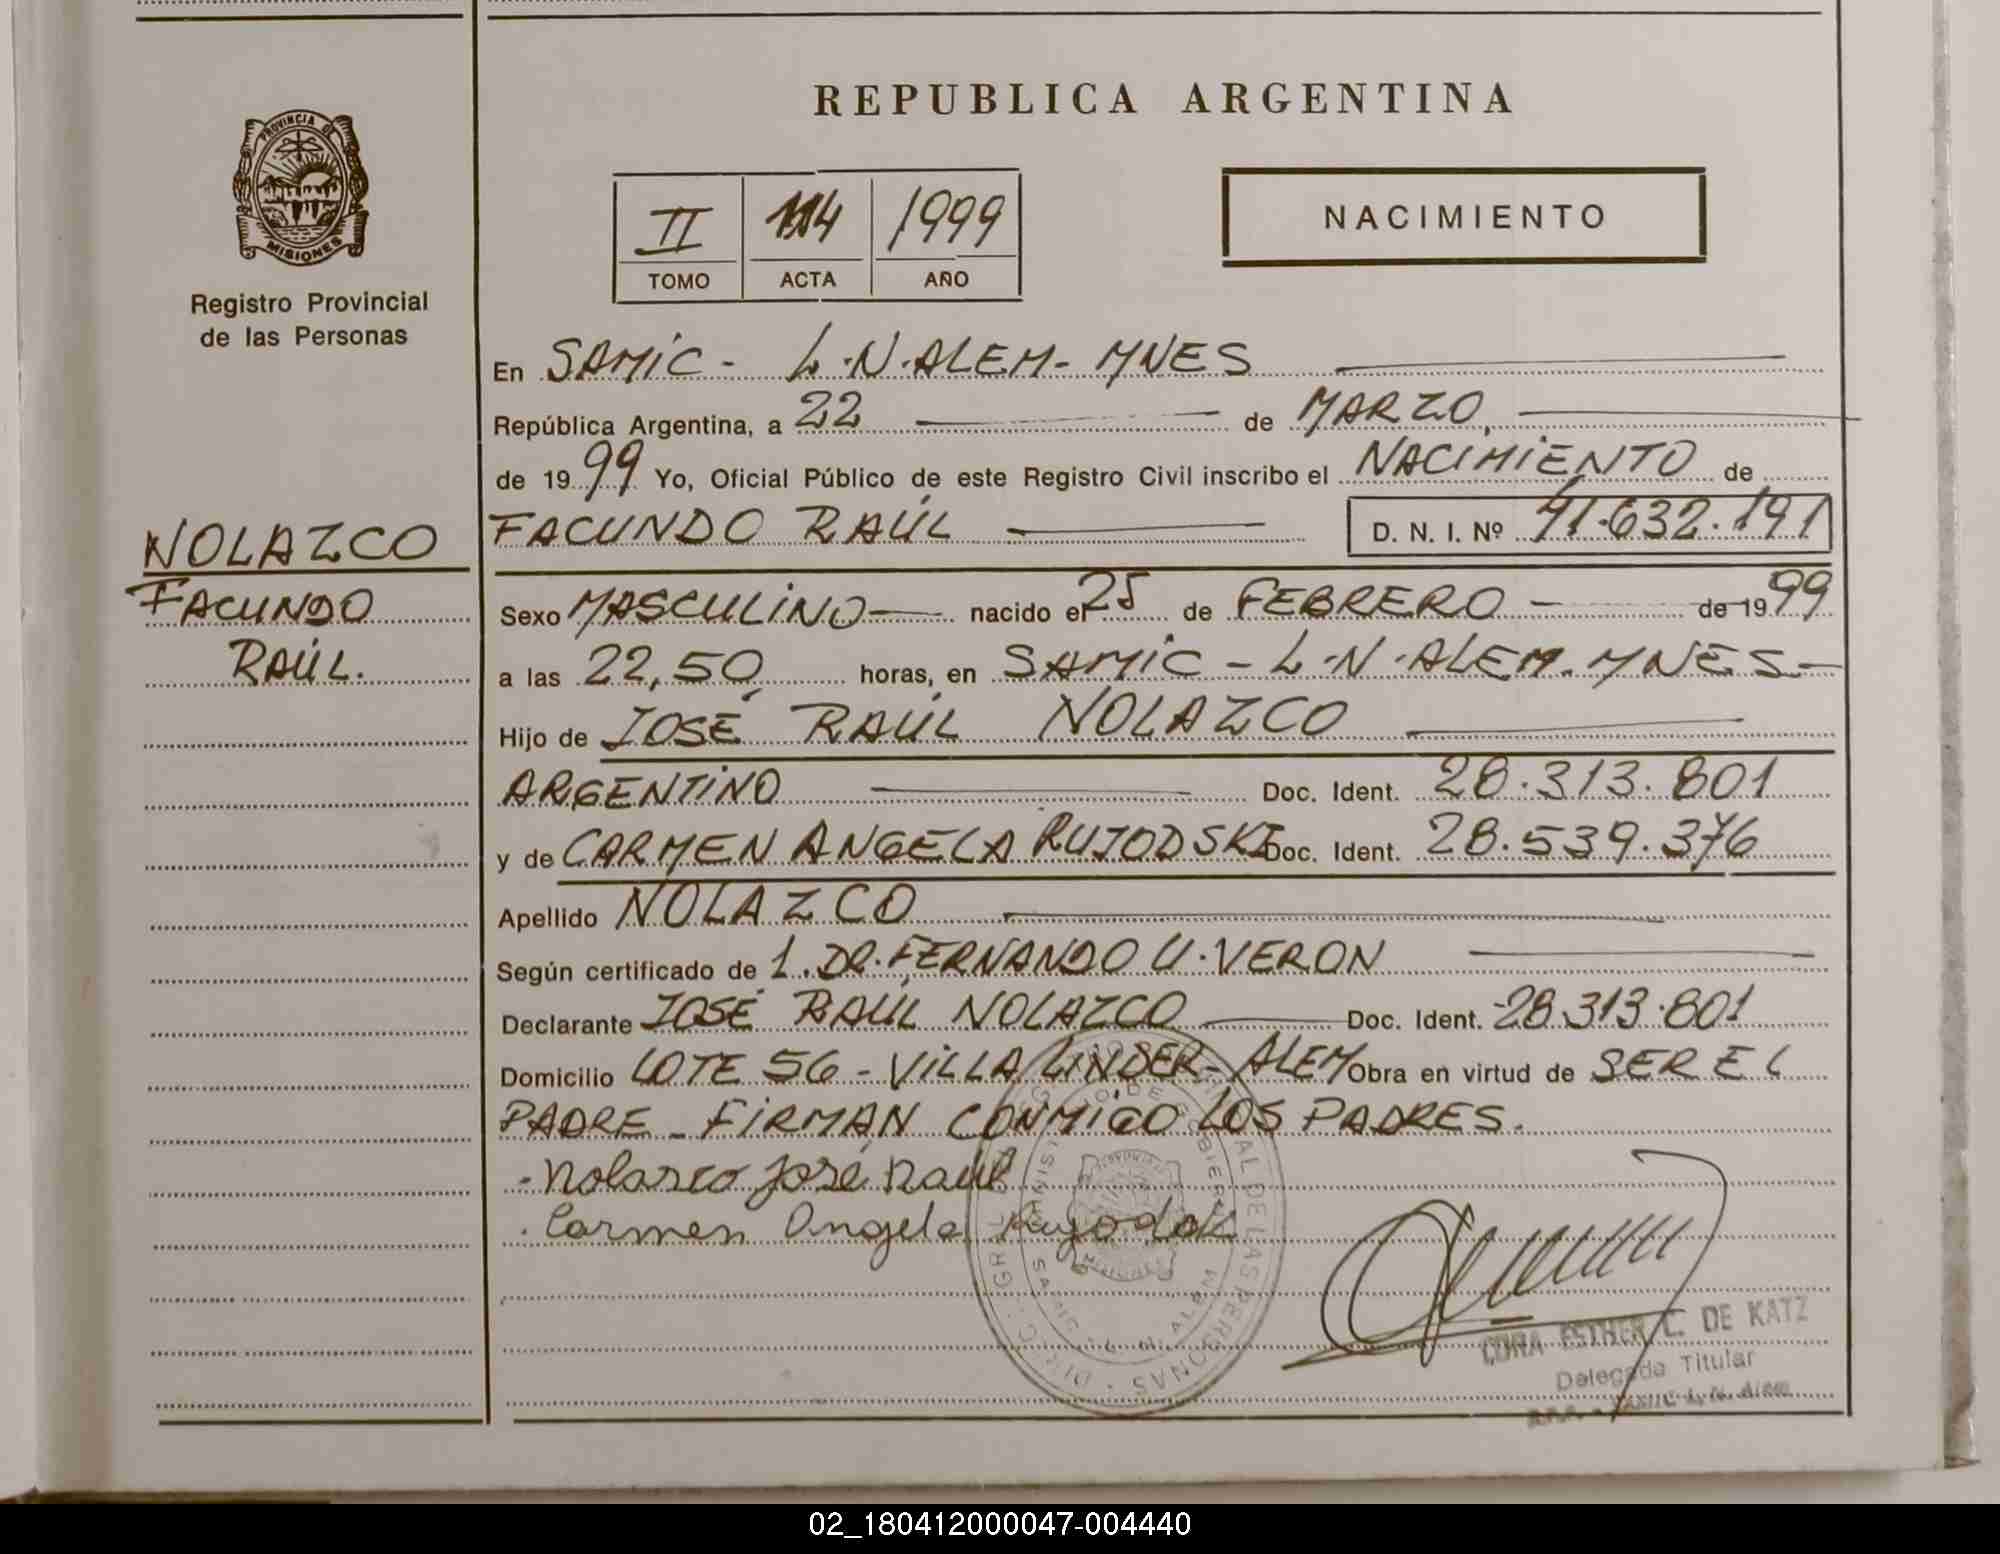 REPUBLICA ARGENTINA
PROVINCIA DE
MISIONES
Registro Provincial
de las Personas
II 114 1999
TOMO ACTA AÑO
NACIMIENTO
En SAMIC - L.N.ALEM- MNES
República Argentina, a 22 de MARZO
de 1999 Yo, Oficial Público de este Registro Civil inscribo el NACIMIENTO de
NOLAZCO
FACUNDO
RAÚL.
FACUNDO RAÚL D. N. I. Nº 41.632.191
Sexo MASCULINO nacido el 25 de FEBRERO de 1999
a las 22,50 horas, en SAMIC - L.N.ALEM. MNES-
Hijo de JOSÉ RAÚL NOLAZCO
ARGENTINO Doc. Ident. 28.313.801
y de CARMEN ANGELA RUJODSKI Doc. Ident. 28.539.376
Apellido NOLAZCO
Según certificado de 1. DR. FERNANDO U. VERON
Declarante JOSÉ RAÚL NOLAZCO Doc. Ident. 28.313.801
Domicilio LOTE 56 - VILLA LINDER- ALEM Obra en virtud de SER EL
PADRE - FIRMAN CONMIGO LOS PADRES.
Nolazco José Raúl
Carmen Angela
CORA ESTHER C. DE KATZ
Delegada Titular
L. N. Alem
02_180412000047-004440